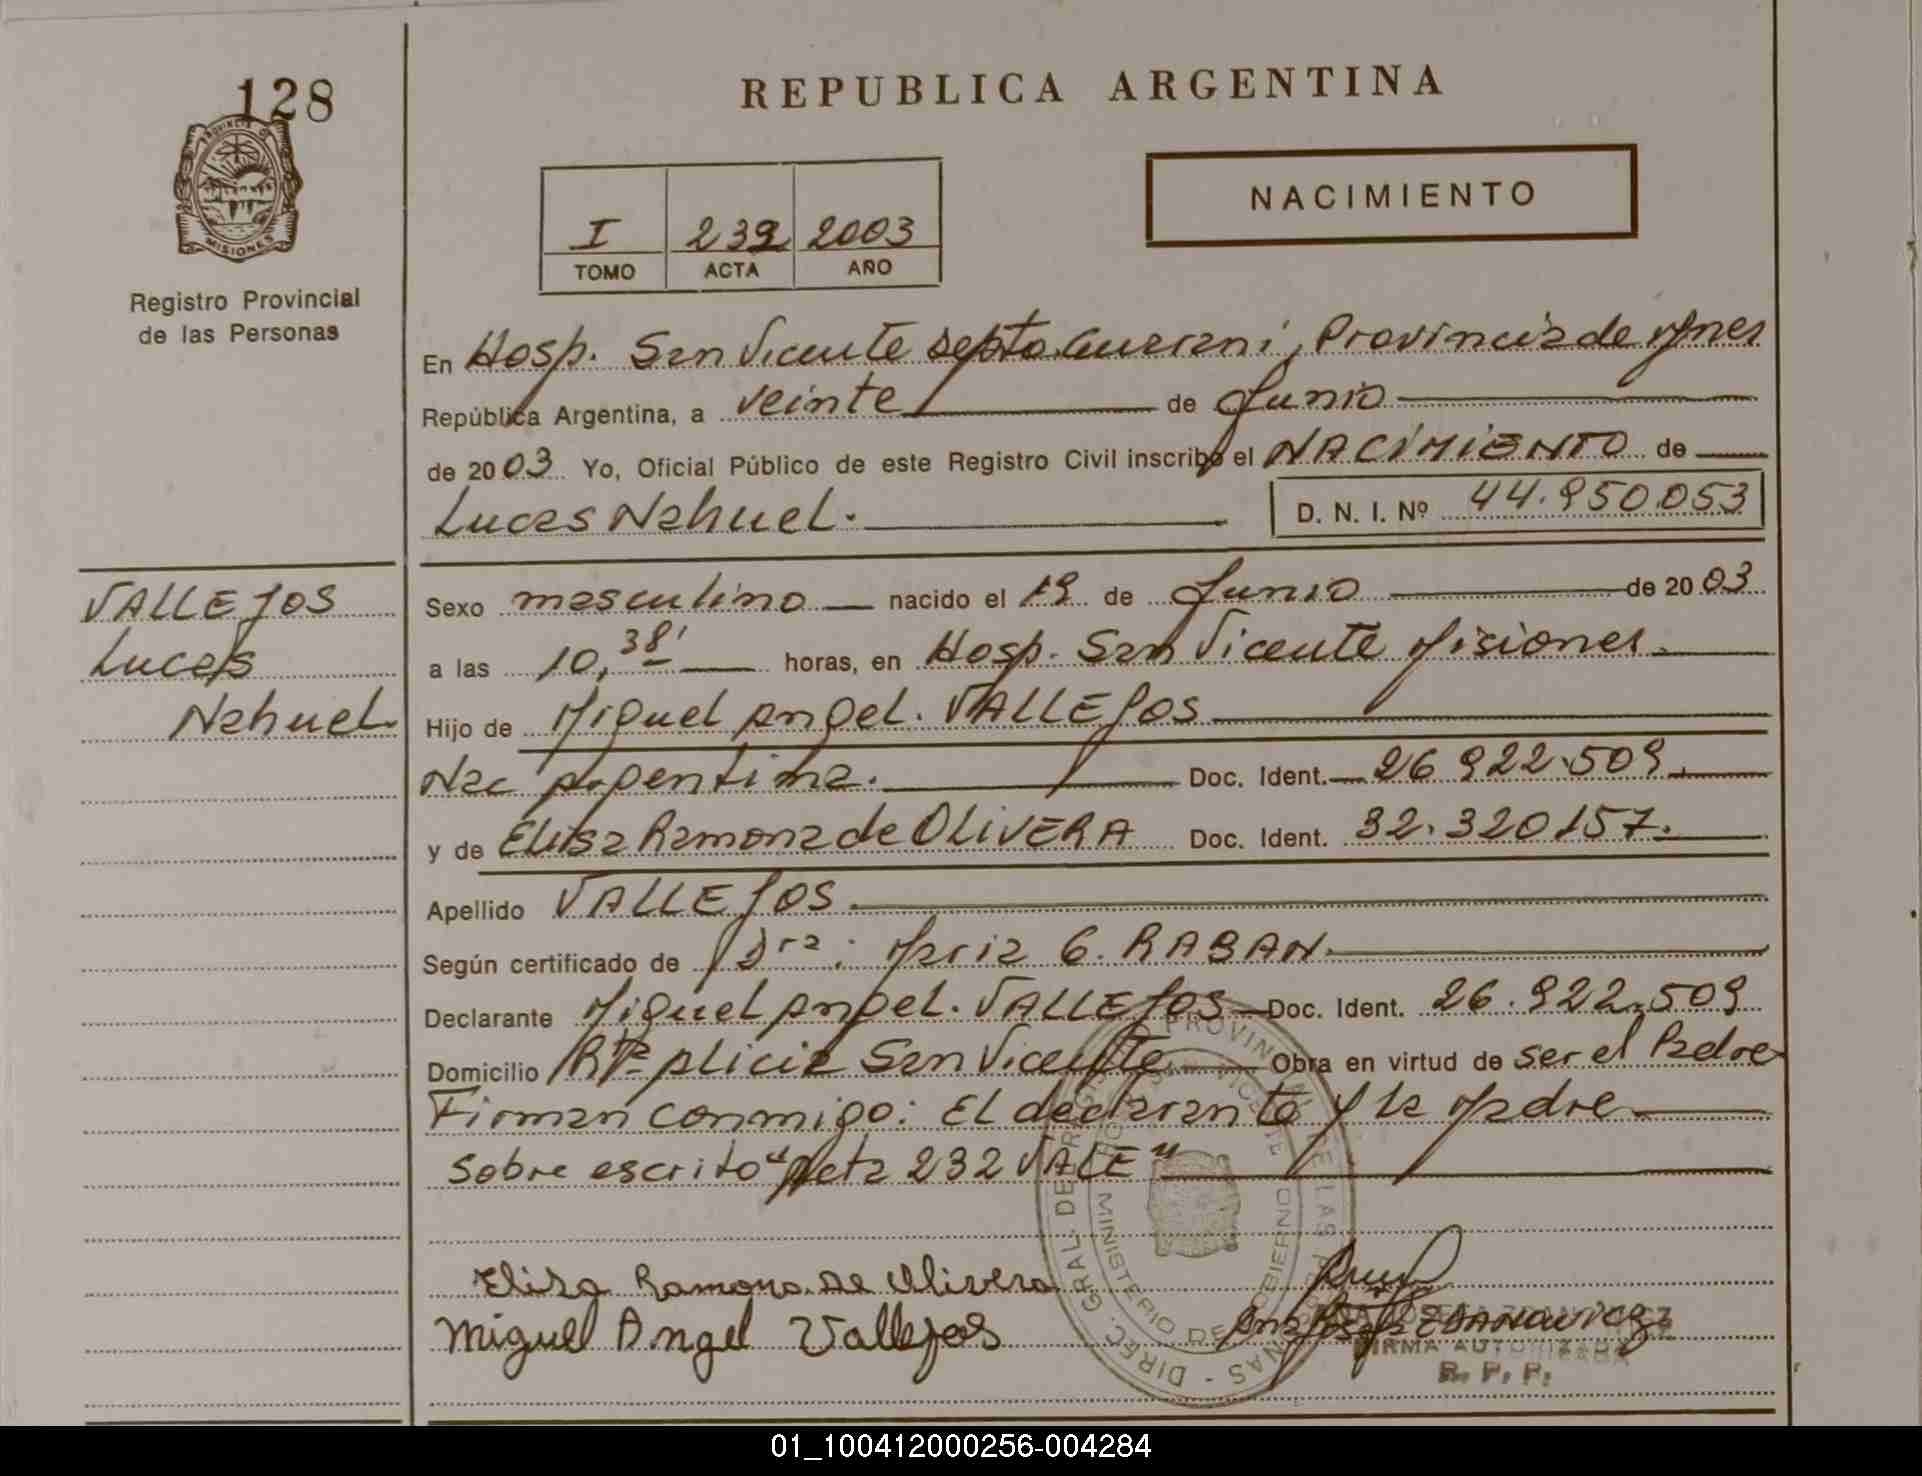 128
REPUBLICA ARGENTINA
PROVINCIA DE
MISIONES
NACIMIENTO
I 232 2003
TOMO ACTA AÑO
Registro Provincial
de las Personas
En Hosp. San Vicente Depto. Guarani, Provincia de Mnes
República Argentina, a veinte de Junio
de 2003 Yo, Oficial Público de este Registro Civil inscribo el NACIMIENTO de
Lucas Nahuel. D. N. I. Nº 44.950.053
VALLEJOS
Lucas
Nahuel.
Sexo masculino nacido el 19 de Junio de 2003
a las 10,38' horas, en Hosp. San Vicente Misiones.
Hijo de Miguel Angel. VALLEJOS
Nac Argentina. Doc. Ident. 26.922.509
y de Elisa Ramona de OLIVERA Doc. Ident. 32.320.157.
Apellido VALLEJOS
Según certificado de Dra: Maria G. RABAN.
Declarante Miguel Angel. VALLEJOS Doc. Ident. 26.922.509
Domicilio Alicia San Vicente Obra en virtud de ser el Padre
Firman conmigo: El declarante y la Madre
Sobre escrito "Acta 232 VALE"
Elisa Ramona De Olivera
Miguel Angel Vallejos
DIREC. GRAL. DE REGISTRO PROVINCIAL DE LAS PERSONAS
MINISTERIO DE GOBIERNO
FIRMA AUTORIZADA
R. P. P.
01_100412000256-004284